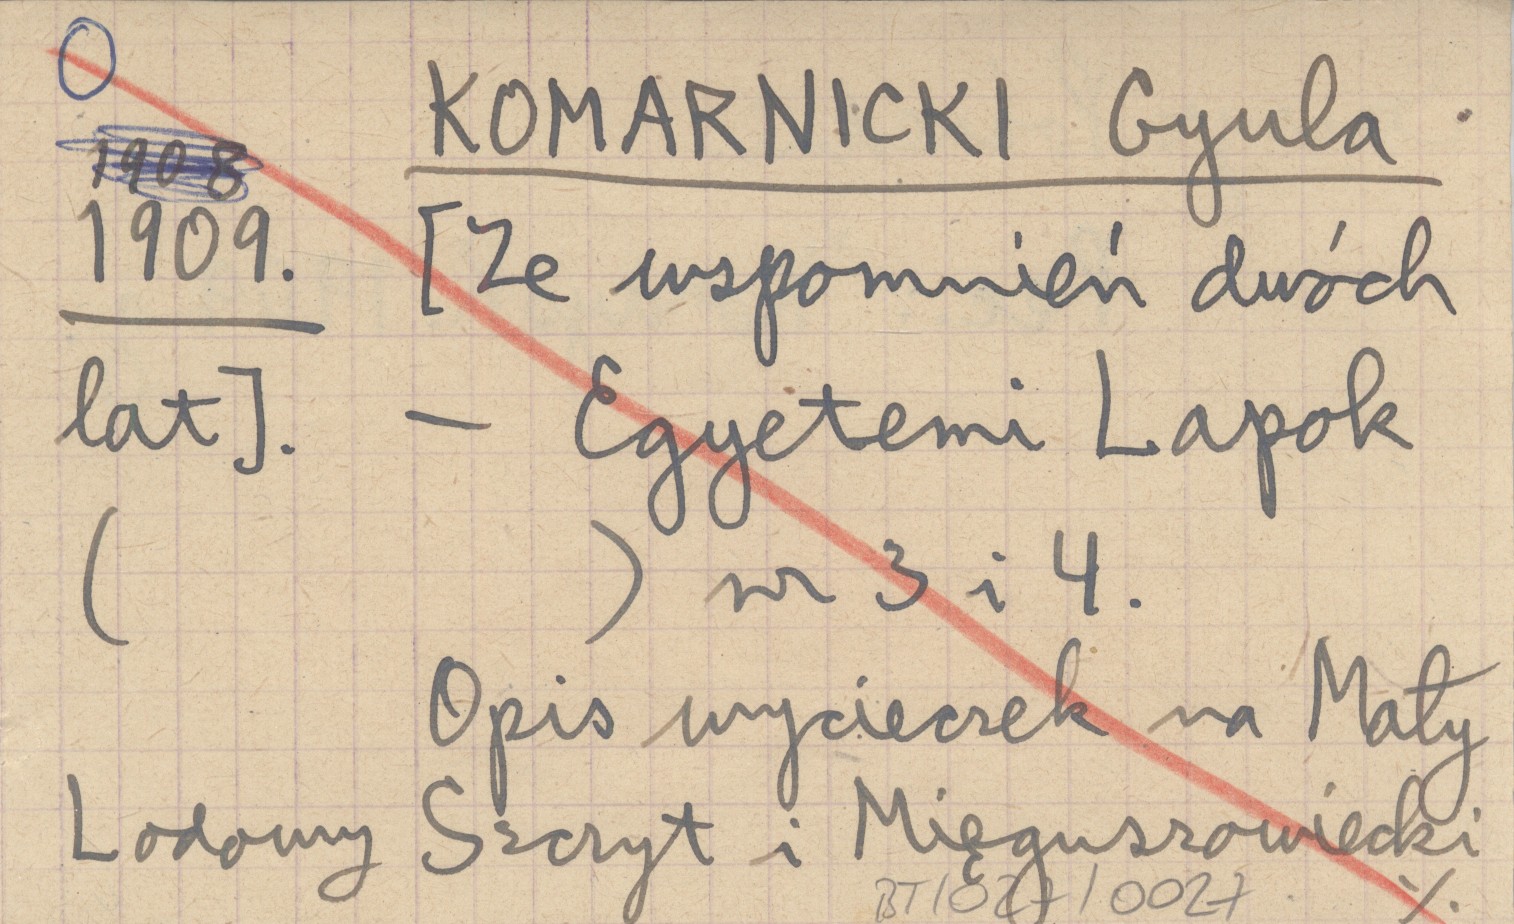 0
KOMARNICKI Gyula
1908
1909. [Ze wspomnień dwóch
lat]. – Egyetemi Lapok
( ) nr 3 i 4.
Opis wycieczek na Mały
Lodowy Szczyt i Mięguszowiecki
BT/027/0027 ./.